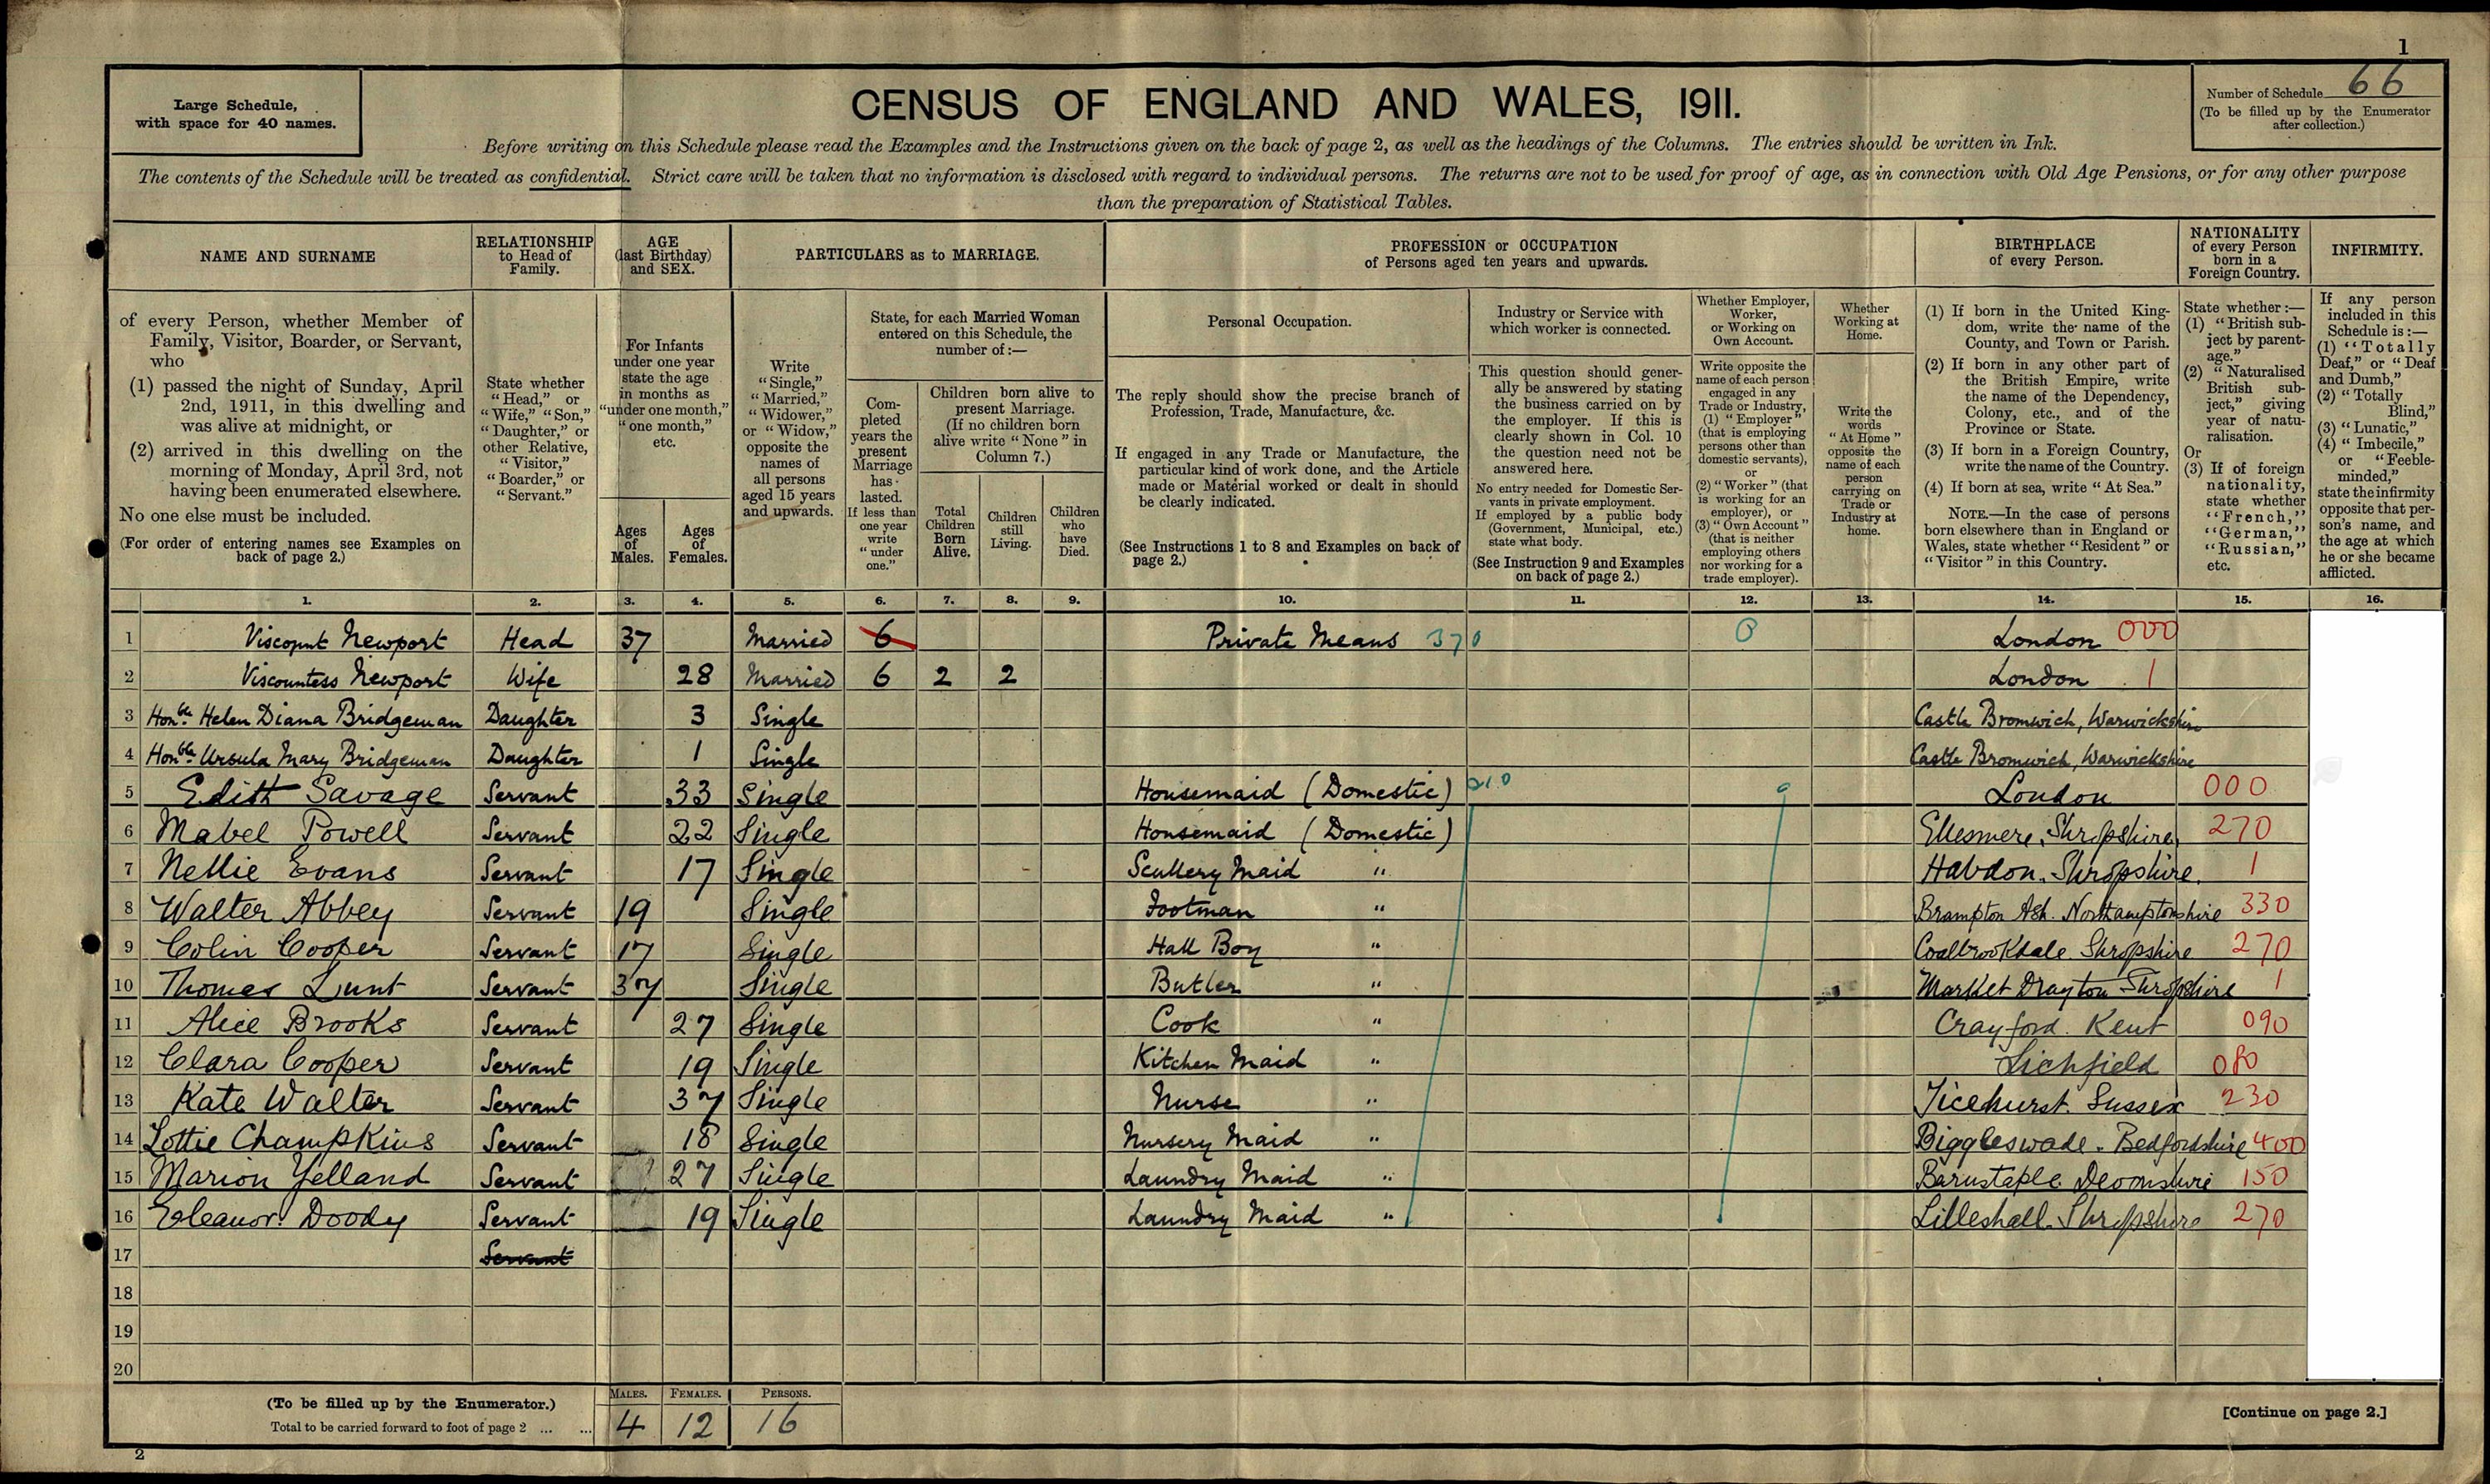 1
Large Schedule,
with space for 40 names.
CENSUS OF ENGLAND AND WALES, 1911.
Number of Schedule 66
(To be filled up by the Enumerator
after collection.)
Before writing on this Schedule please read the Examples and the Instructions given on the back of page 2, as well as the headings of the Columns. The entries should be written in Ink.
The contents of the Schedule will be treated as confidential. Strict care will be taken that no information is disclosed with regard to individual persons. The returns are not to be used for proof of age, as in connection with Old Age Pensions, or for any other purpose
than the preparation of Statistical Tables.
NAME AND SURNAME
of every Person, whether Member of
Family, Visitor, Boarder, or Servant,
who
(1) passed the night of Sunday, April
2nd, 1911, in this dwelling and
was alive at midnight, or
(2) arrived in this dwelling on the
morning of Monday, April 3rd, not
having been enumerated elsewhere.
No one else must be included.
(For order of entering names see Examples on
back of page 2.)
RELATIONSHIP
to Head of
Family.
State whether
"Head," or
"Wife," "Son,"
"Daughter," or
other Relative,
"Visitor,"
"Boarder," or
"Servant."
AGE
(last Birthday)
and SEX.
For Infants
under one year
state the age
in months as
"under one month,"
"one month,"
etc.
Ages
of
Males.
Ages
of
Females.
PARTICULARS as to MARRIAGE.
Write
"Single,"
"Married,"
"Widower,"
or "Widow,"
opposite the
names of
all persons
aged 15 years
and upwards.
State, for each Married Woman
entered on this Schedule, the
number of:—
Com-
pleted
years the
present
Marriage
has
lasted.
If less than
one year
write
"under
one."
Children born alive to
present Marriage.
(If no children born
alive write "None" in
Column 7.)
Total
Children
Born
Alive.
Children
still
Living.
Children
who
have
Died.
PROFESSION or OCCUPATION
of Persons aged ten years and upwards.
Personal Occupation.
The reply should show the precise branch of
Profession, Trade, Manufacture, &c.
If engaged in any Trade or Manufacture, the
particular kind of work done, and the Article
made or Material worked or dealt in should
be clearly indicated.
(See Instructions 1 to 8 and Examples on back of
page 2.)
Industry or Service with
which worker is connected.
This question should gener-
ally be answered by stating
the business carried on by
the employer. If this is
clearly shown in Col. 10
the question need not be
answered here.
No entry needed for Domestic Ser-
vants in private employment.
If employed by a public body
(Government, Municipal, etc.)
state what body.
(See Instruction 9 and Examples
on back of page 2.)
Whether Employer,
Worker,
or Working on
Own Account.
Write opposite the
name of each person
engaged in any
Trade or Industry,
(1) "Employer"
(that is employing
persons other than
domestic servants),
or
(2) "Worker" (that
is working for an
employer), or
(3) "Own Account"
(that is neither
employing others
nor working for a
trade employer).
Whether
Working at
Home.
Write the
words
"At Home"
opposite the
name of each
person
carrying on
Trade or
Industry at
home.
BIRTHPLACE
of every Person.
(1) If born in the United King-
dom, write the name of the
County, and Town or Parish.
(2) If born in any other part of
the British Empire, write
the name of the Dependency,
Colony, etc., and of the
Province or State.
(3) If born in a Foreign Country,
write the name of the Country.
(4) If born at sea, write "At Sea."
NOTE.—In the case of persons
born elsewhere than in England or
Wales, state whether "Resident" or
"Visitor" in this Country.
NATIONALITY
of every Person
born in a
Foreign Country.
State whether:—
(1) "British sub-
ject by parent-
age."
(2) "Naturalised
British sub-
ject," giving
year of natu-
ralisation.
Or
(3) If of foreign
nationality,
state whether
"French,"
"German,"
"Russian,"
etc.
INFIRMITY.
If any person
included in this
Schedule is:—
(1) "Totally
Deaf," or "Deaf
and Dumb,"
(2) "Totally
Blind,"
(3) "Lunatic,"
(4) "Imbecile,"
or "Feeble-
minded,"
state the infirmity
opposite that per-
son's name, and
the age at which
he or she became
afflicted.
1. 2. 3. 4. 5. 6. 7. 8. 9. 10. 11. 12. 13. 14. 15. 16.
1 Viscount Newport Head 37 Married 6 Private Means 370 0 London 000
2 Viscountess Newport Wife 28 Married 6 2 2 London 1
3 Honble. Helen Diana Bridgeman Daughter 3 Single Castle Bromwich, Warwickshire
4 Honble. Ursula Mary Bridgeman Daughter 1 Single Castle Bromwich, Warwickshire
5 Edith Savage Servant 33 Single Housemaid (Domestic) London 000
6 Mabel Powell Servant 22 Single Housemaid (Domestic) Ellesmere, Shropshire 270
7 Nellie Evans Servant 17 Single Scullery Maid " Shropshire 1
8 Walter Abbey Servant 19 Single Footman " Brampton Ash. Northamptonshire 330
9 Colin Cooper Servant 17 Single Hall Boy " Coalbrookdale Shropshire 270
10 Thomas Lunt Servant 37 Single Butler " Market Drayton Shropshire 1
11 Alice Brooks Servant 27 Single Cook " Crayford Kent 090
12 Clara Cooper Servant 19 Single Kitchen Maid " Lichfield 080
13 Kate Walter Servant 37 Single Nurse " Ticehurst. Sussex 230
14 Lottie Champkins Servant 18 Single Nursery Maid " Biggleswade. Bedfordshire 400
15 Marion Yelland Servant 27 Single Laundry Maid " Barnstaple Devonshire 150
16 Eleanor Doody Servant 19 Single Laundry Maid " Lilleshall. Shropshire 270
17 Servant
18
19
20
(To be filled up by the Enumerator.)
Total to be carried forward to foot of page 2 ... ...
MALES. FEMALES. PERSONS.
4 12 16
[Continue on page 2.]
2